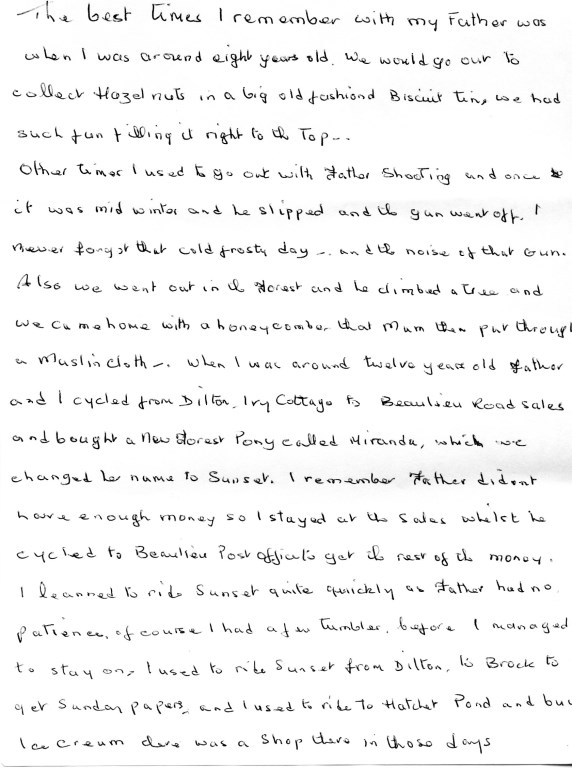 The best times I remember with my Father was
when I was around eight years old. We would go out to
collect Hazel nuts in a big old fashiond Biscuit tin, we had
such fun filling it right to the Top--.
Other times I used to go out with Father Shooting and once
it was mid winter and he slipped and the gun went off. I
never forgot that cold frosty day -. and the noise of that Gun.
Also we went out in the Forest and he climbed a Tree and
we came home with a honeycomb that Mum then put through
a Muslin cloth -. when I was around twelve years old Father
and I cycled from Dilton, Ivy Cottage to Beaulieu Road sales
and bought a New Forest Pony called Miranda, which we
changed her name to Sunset. I remember Father didont
have enough money so I stayed at the sales whilst he
cycled to Beaulieu Post Office to get the rest of the money.
I learned to ride Sunset quite quickly as Father had no
patience, of course I had a few tumbles, before I managed
to stay on, I used to ride Sunset from Dilton, to Brock to
get Sunday papers, and I used to ride To Hatchet Pond and buy
Ice Cream there was a Shop there in those days